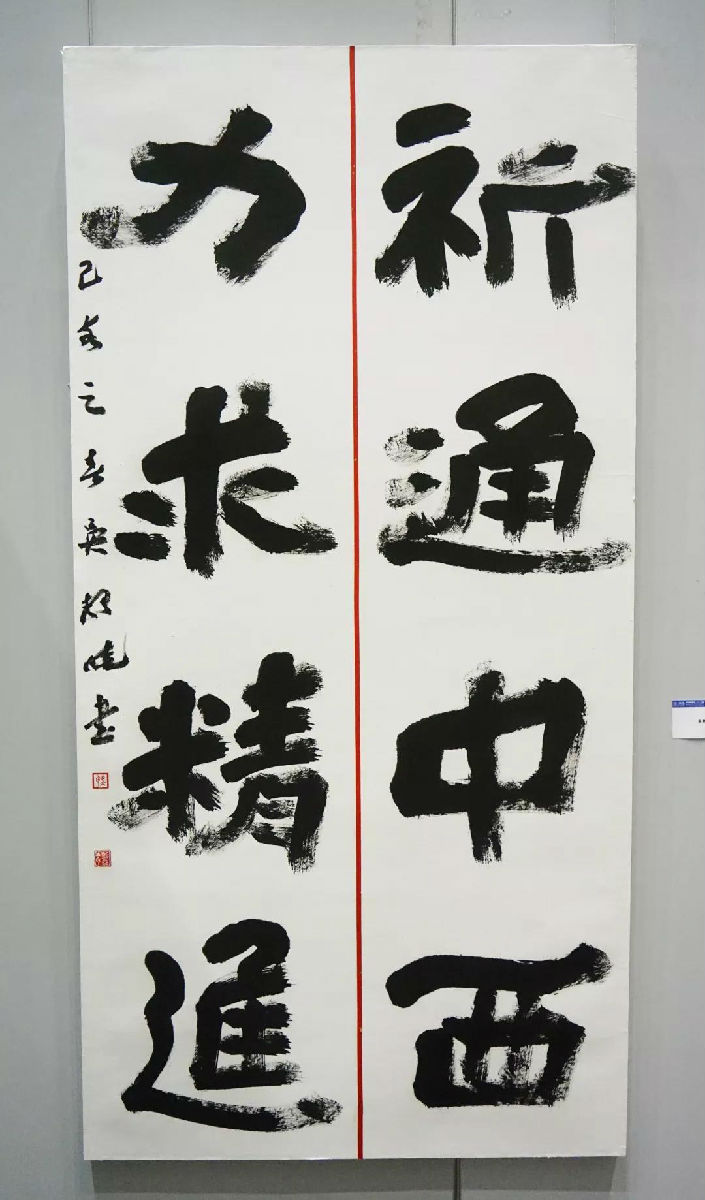 祈通中西
力求精進
己亥之春吳